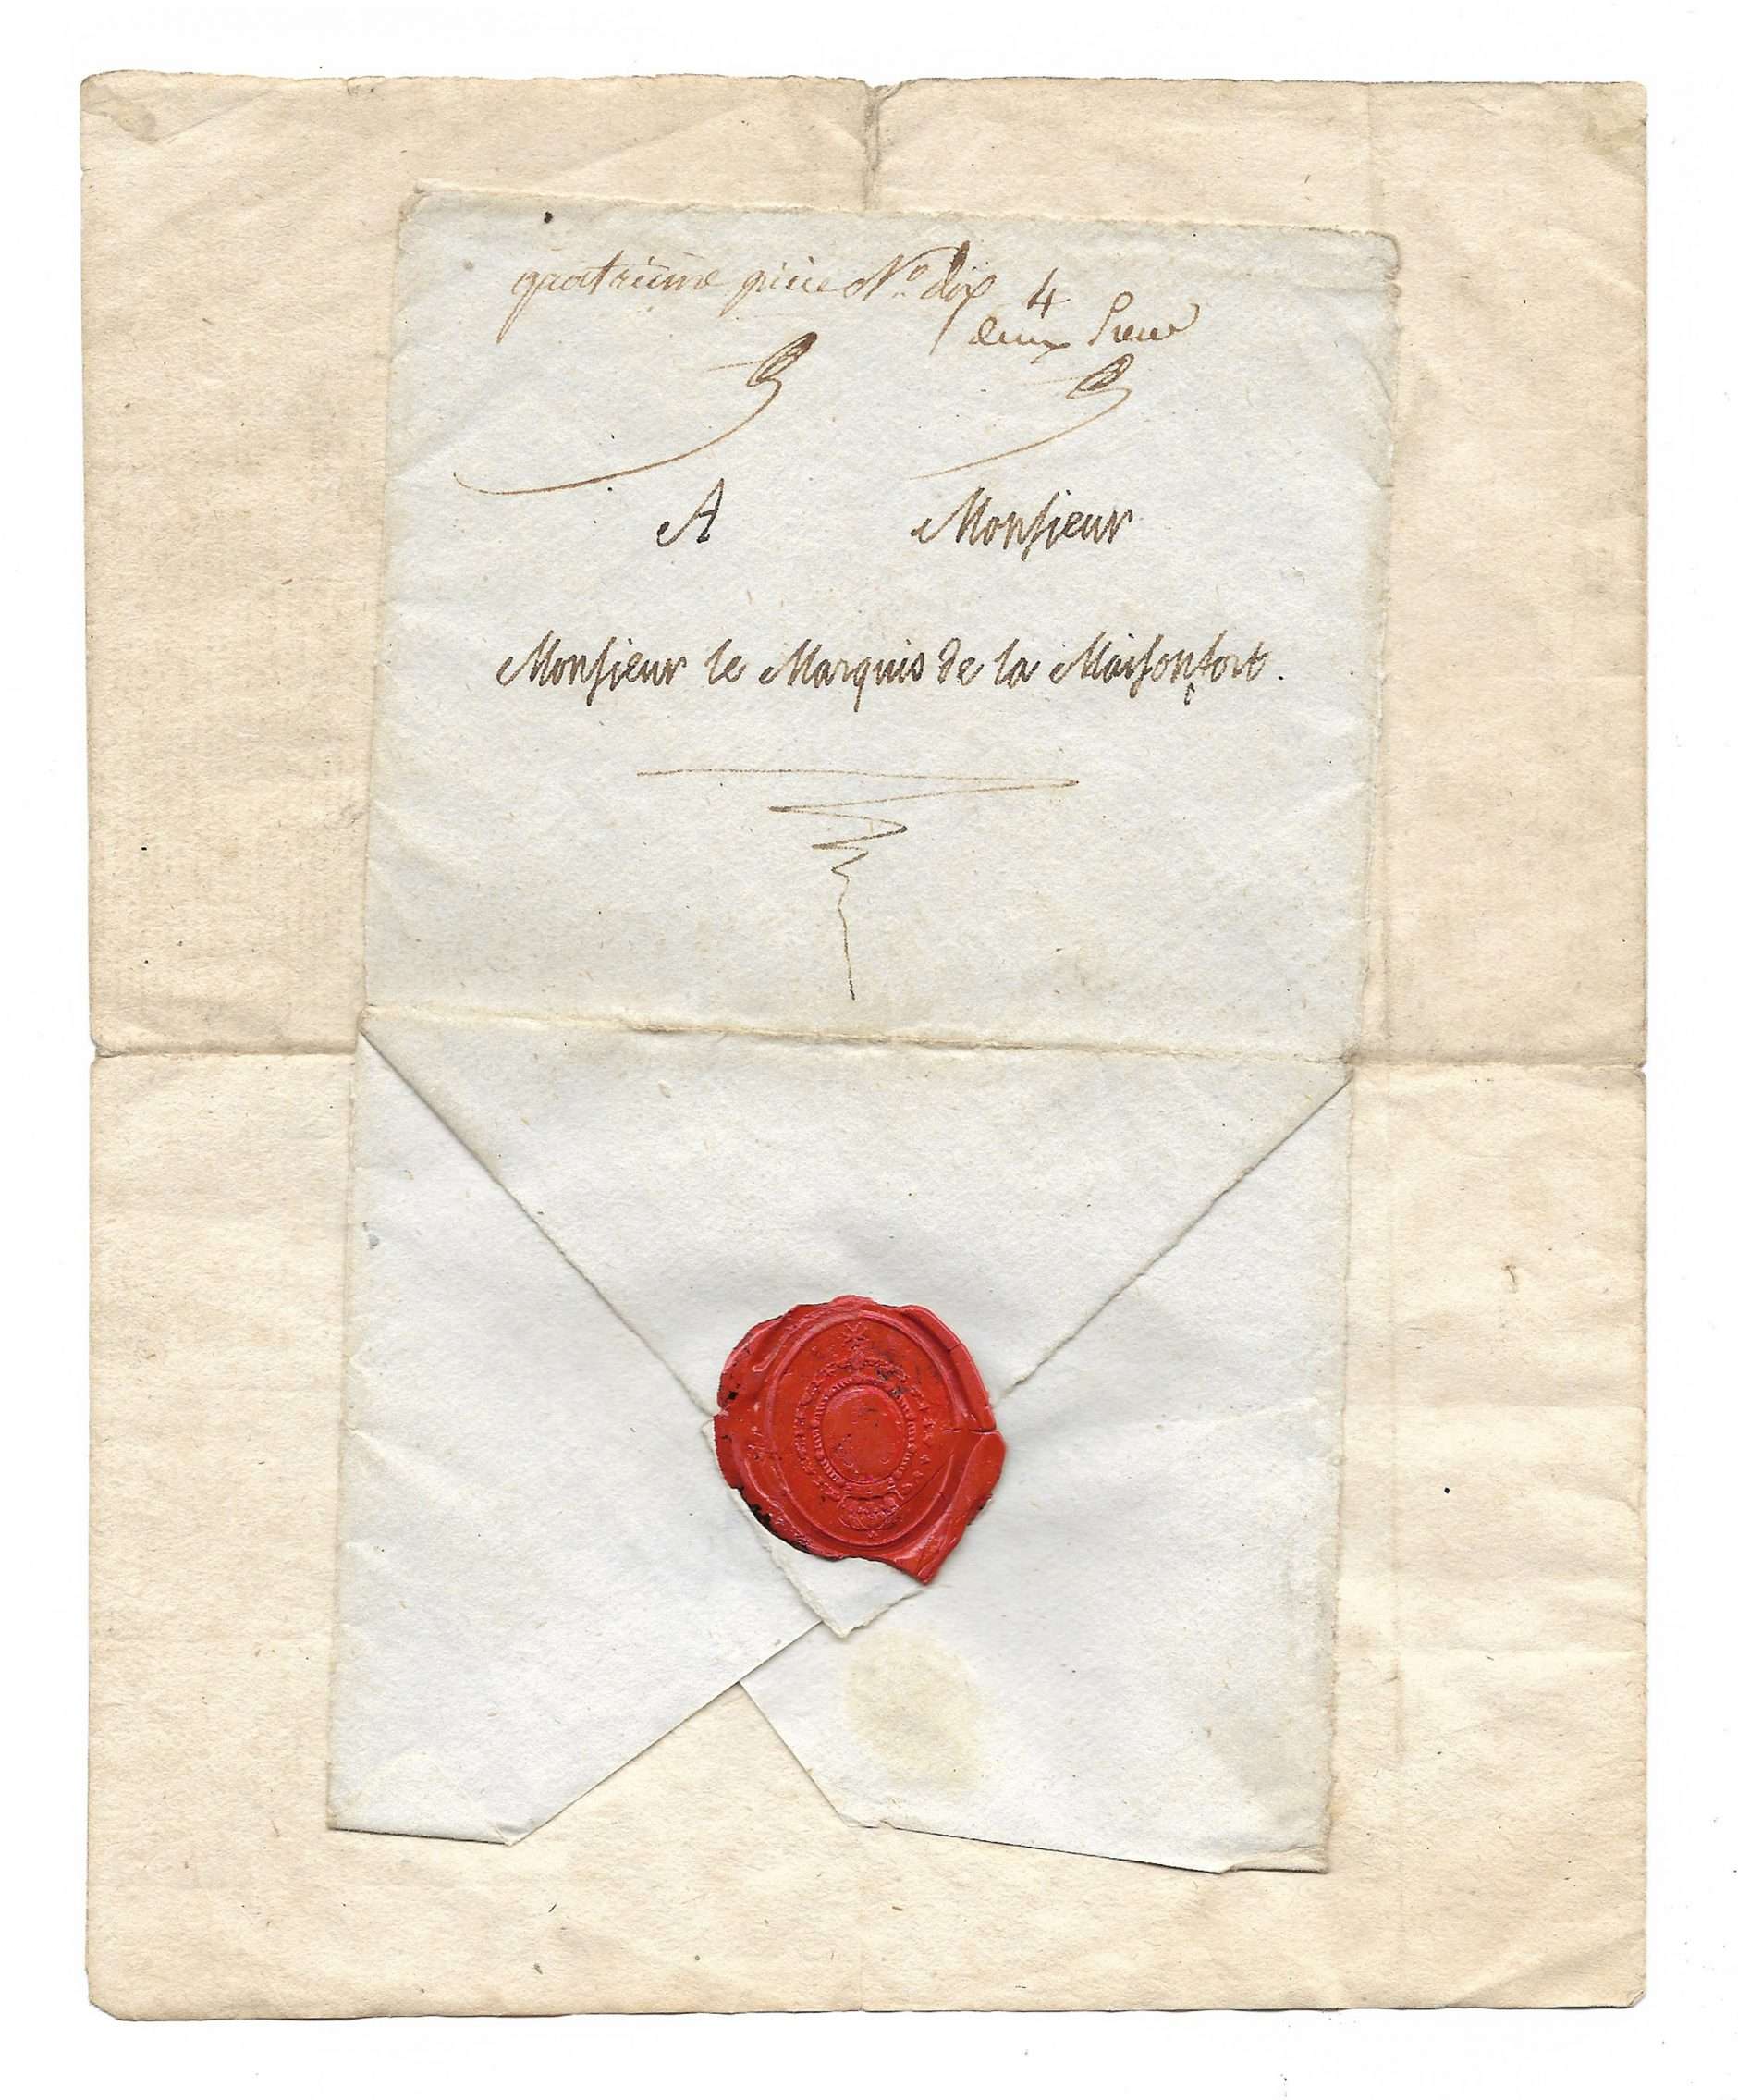 quatrieme piece No. dix 4
deux
A Monsieur
Monsieur le Marquis de la Maisonfort.